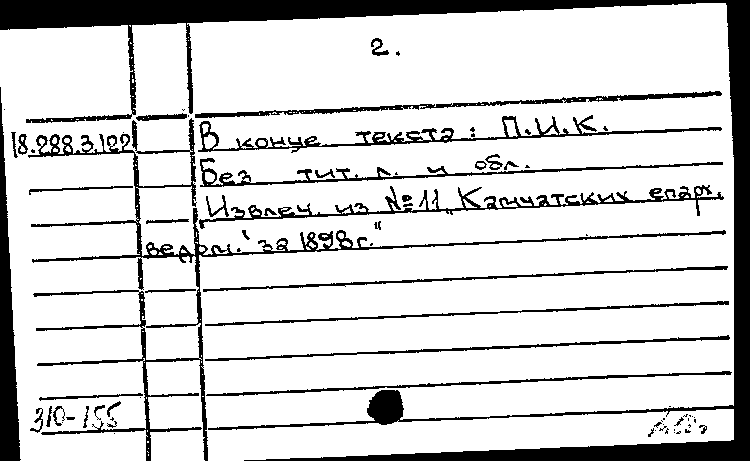 2.
18.288.3.122 В конце текста: П.И.К.
Без тит. л. и обл.
"Извлеч. из №11 "Камчатских епарх.
ведом.' за 1898 г."
310-155